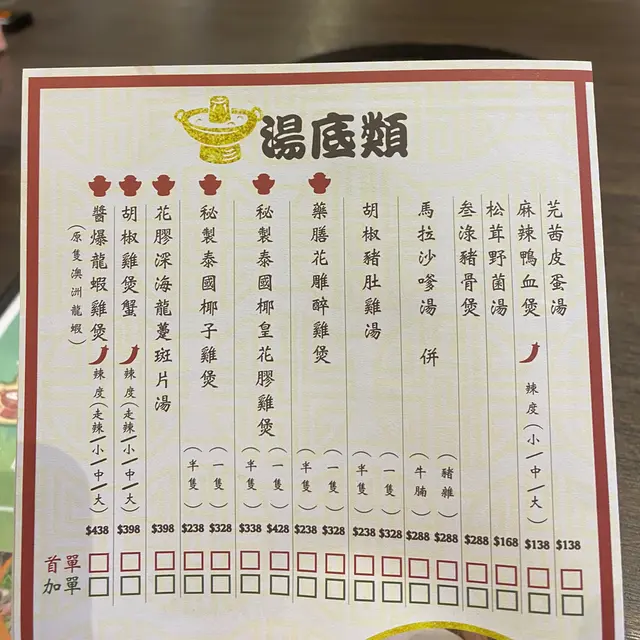 湯底類
芫茜皮蛋湯
$138
麻辣鴨血煲
辣度(小/中/大)
$138
松茸野菌湯
$168
叁淥豬骨煲
$288
馬拉沙嗲湯 併
(豬雜)
$288
(牛腩)
$288
胡椒豬肚雞湯
(一隻)
$328
(半隻)
$238
藥膳花雕醉雞煲
(一隻)
$328
(半隻)
$238
秘製泰國椰皇花膠雞煲
(一隻)
$428
(半隻)
$338
秘製泰國椰子雞煲
(一隻)
$328
(半隻)
$238
花膠深海龍躉斑片湯
$398
胡椒雞煲蟹
辣度(走辣/小/中/大)
$398
醬爆龍蝦雞煲
(原隻澳洲龍蝦)
辣度(走辣/小/中/大)
$438
首單
加單